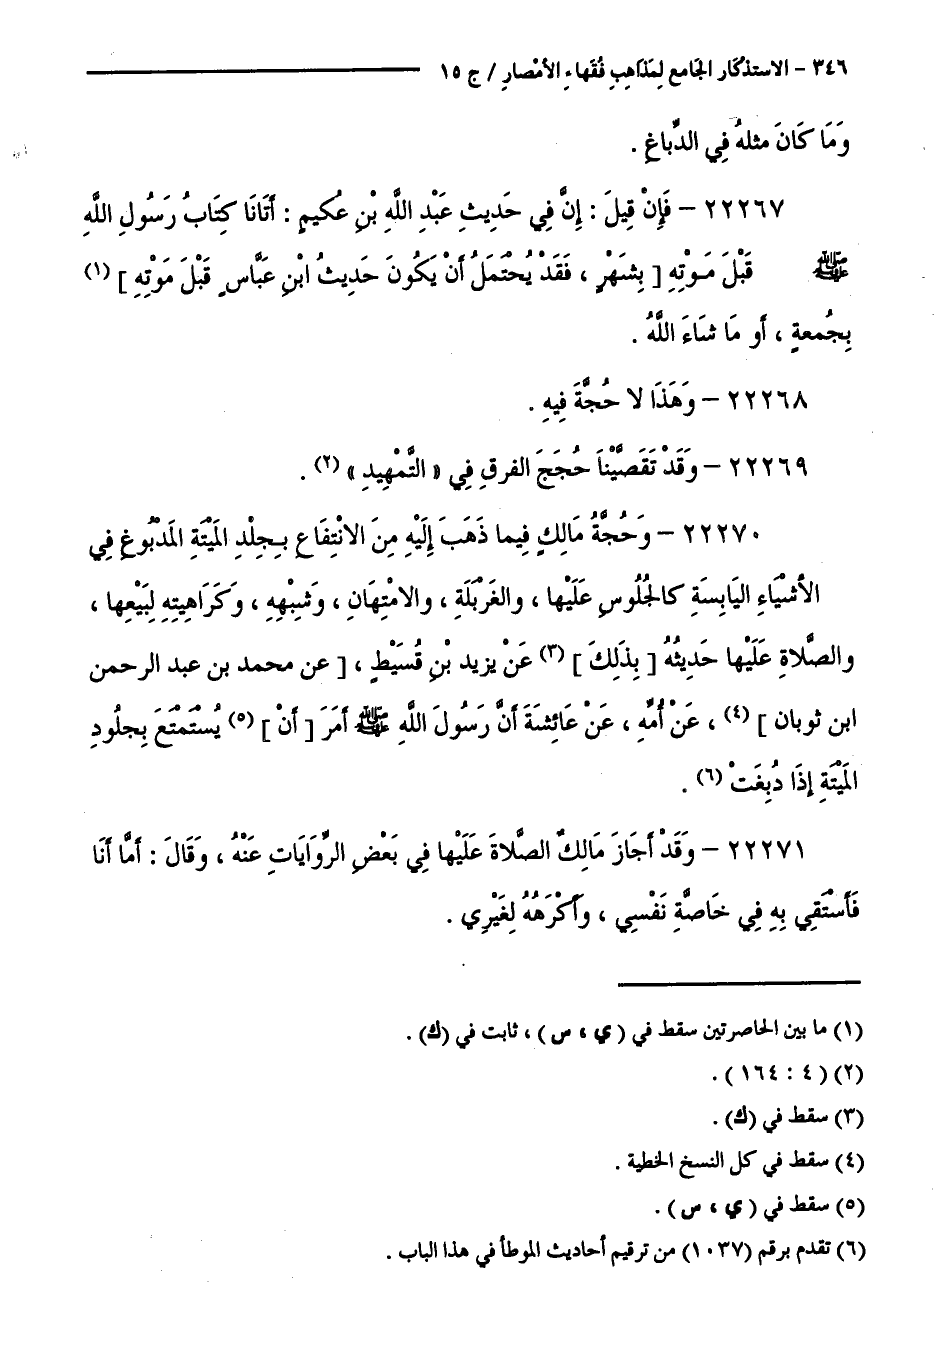 ٣٤٦ – الاستذكَار الجَامع لِمَذاهِبِ فُقَهاءِ الأَمْصارِ / ج ١٥
وَمَا كَانَ مثلهُ فِي الدِّباغِ .
٢٢٢٦٧ – فَإِنْ قِيلَ : إِنَّ فِي حَدِيثِ عَبْدِ اللَّهِ بْنِ عُكيمٍ : أَتَانَا كِتَابُ رَسُولِ اللَّهِ
ﷺ قَبْلَ مَوْتِهِ [ بِشَهْرٍ ، فَقَدْ يُحْتَمَلُ أَنْ يَكُونَ حَدِيثُ ابْنِ عَبَّاسٍ قَبْلَ مَوْتِهِ ] (١)
بِجُمعةٍ ، أَو مَا شَاءَ اللَّهُ .
٢٢٢٦٨ – وَهَذَا لا حُجَّةَ فِيهِ .
٢٢٢٦٩ – وَقَدْ تَقَصَّيْنَا حُجَجَ الفرقِ فِي « التَّمْهِيدِ » (٢) .
٢٢٢٧٠ – وَحُجَّةُ مَالِكٍ فِيما ذَهَبَ إِلَيْهِ مِنَ الانْتِفَاعِ بِجِلْدِ المَيْتَةِ المَدْبُوغِ فِي
الأشْيَاءِ اليَابِسَةِ كالجُلُوسِ عَلَيْها ، والغَرْبَلَةِ ، والامْتِهَانِ ، وَشِبْهِهِ ، وَكَرَاهِيتِهِ لِبَيْعِها ،
والصَّلاةِ عَلَيْها حَدِيثُهُ [ بِذَلِكَ ] (٣) عَنْ يزيد بْنِ قُسَيْطٍ ، [ عن محمد بن عبد الرحمن
ابن ثوبان ] (٤) ، عَنْ أُمِّهِ ، عَنْ عَائِشَةَ أَنَّ رَسُولَ اللَّهِ ﷺ أَمَرَ [ أَنْ ] (٥) يُسْتَمْتَعَ بِجلُودِ
المَيْتَةِ إِذَا دُبِغَتْ (٦) .
٢٢٢٧١ – وَقَدْ أَجَازَ مَالِكٌ الصَّلاةَ عَلَيْها فِي بَعْضِ الرِّوَايَاتِ عَنْهُ ، وَقَالَ : أَمَّا أَنَا
فَأَسْتَقِي بِهِ فِي خَاصَّةِ نَفْسِي ، وَأَكْرَهُهُ لِغَيْرِي .
(١) ما بين الحاصرتين سقط في ( ي ، س ) ، ثابت في (ك) .
(٢) ( ٤ : ١٦٤ ) .
(٣) سقط في (ك) .
(٤) سقط في كل النسخ الخطية .
(٥) سقط في ( ي ، س ) .
(٦) تقدم برقم (١٠٣٧) من ترقيم أحاديث الموطأ في هذا الباب .